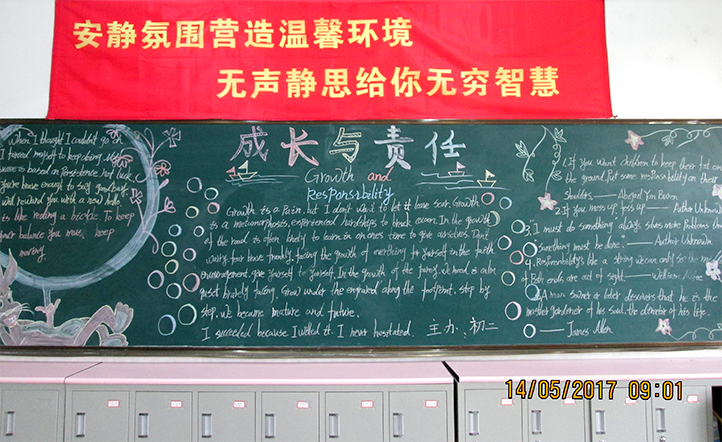 安静氛围营造温馨环境
无声静思给你无穷智慧
When I thought I couldn't go on
I forced myself to keep going. My
success is based on persistence not luck
you're brave enough to say goodbye
will reward you with a new hello
is like reading a bicycle. To keep
your balance you must keep
moving.
成长与责任
Growth and
Responsibility
Growth is a Pain. but I don't want to let it leave scar. Growth
is a metamorphosis, experienced hardships to break cocoon. In the growth
of the road is often likely to learn in on ones time to give ourselves. Don't
facing the growth of everything for yourself in the faith
encouragement. give yourself to yourself. In the growth of the journey, we need a calm
quiet bravely facing. Grow under the engraved along the footprint. step by
step. We become mature and future.
I succeeded because I willed it. I never hesitated. 主办: 初二
1. If you want children to keep their feet on
the ground. Put some responsibility on their
shoulders. — Abigail Van Buren
2. If you mess up, fess up — Author Unknown
3. I must do something always solves more problems than
something must be done. — Author Unknown
4. Responsibility's like a string we can only see the middle
of. Both ends are out of sight. — William
5. A man sooner or later discovers that he is the
master-gardener of his soul. the director of his life.
— James Allen
14/05/2017 09:01